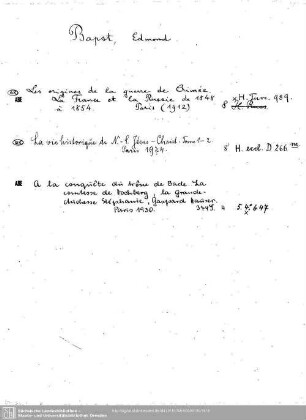 Bapst, Edmond.
Les origines de la guerre de Crimée.
La France et la Russie de 1848
à 1854. Paris (1912) 8° H. Turc. 989.
La vie historique de N.-S. Jésus-Christ. Tom 1-2
Paris 1924. 8° H. eccl. D 266
A la conquête du trône de Bade. La
comtesse de Hochberg, la Grande-
duchesse Stéphanie, Gaspard Hauser.
Paris 1930. 5. 4° 647